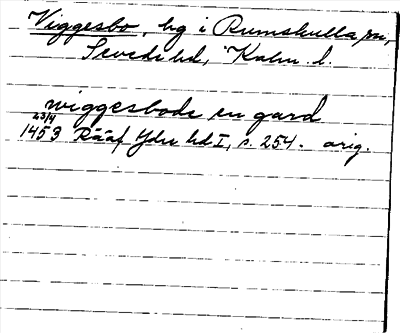 Viggesbo, hg i Rumskulla sn,
Sevede hd, Kalm. l.
wiggesbode en gard
23/4
1453 Rääf Ydre hd I, s. 254. orig.